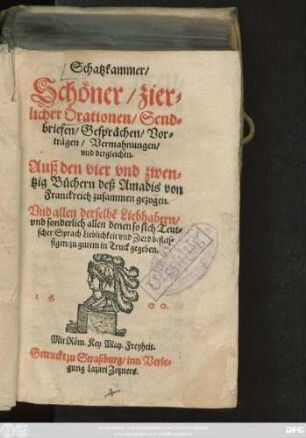 Schatzkammer/
Schöner/ zier-
licher Orationen/ Send-
briefen/ Gesprächen/ Vor-
trägen/ Vermahnungen/
vnd dergleichen.
Auß den vier vnd zwen-
tzig Büchern deß Amadis von
Franckreich zusammen gezogen.
Vnd allen derselbē Liebhabern/
vnd sonderlich allen denen so sich Teut-
scher Sprach Lieblichkeit vnd Zierd befleis-
sigen/ zu gutem in Truck gegeben.
16 00.
Mit Röm. Key May. Freyheit.
Getruckt zu Straßburg/ inn Verle-
gung Lazari Zetzners.
DFG